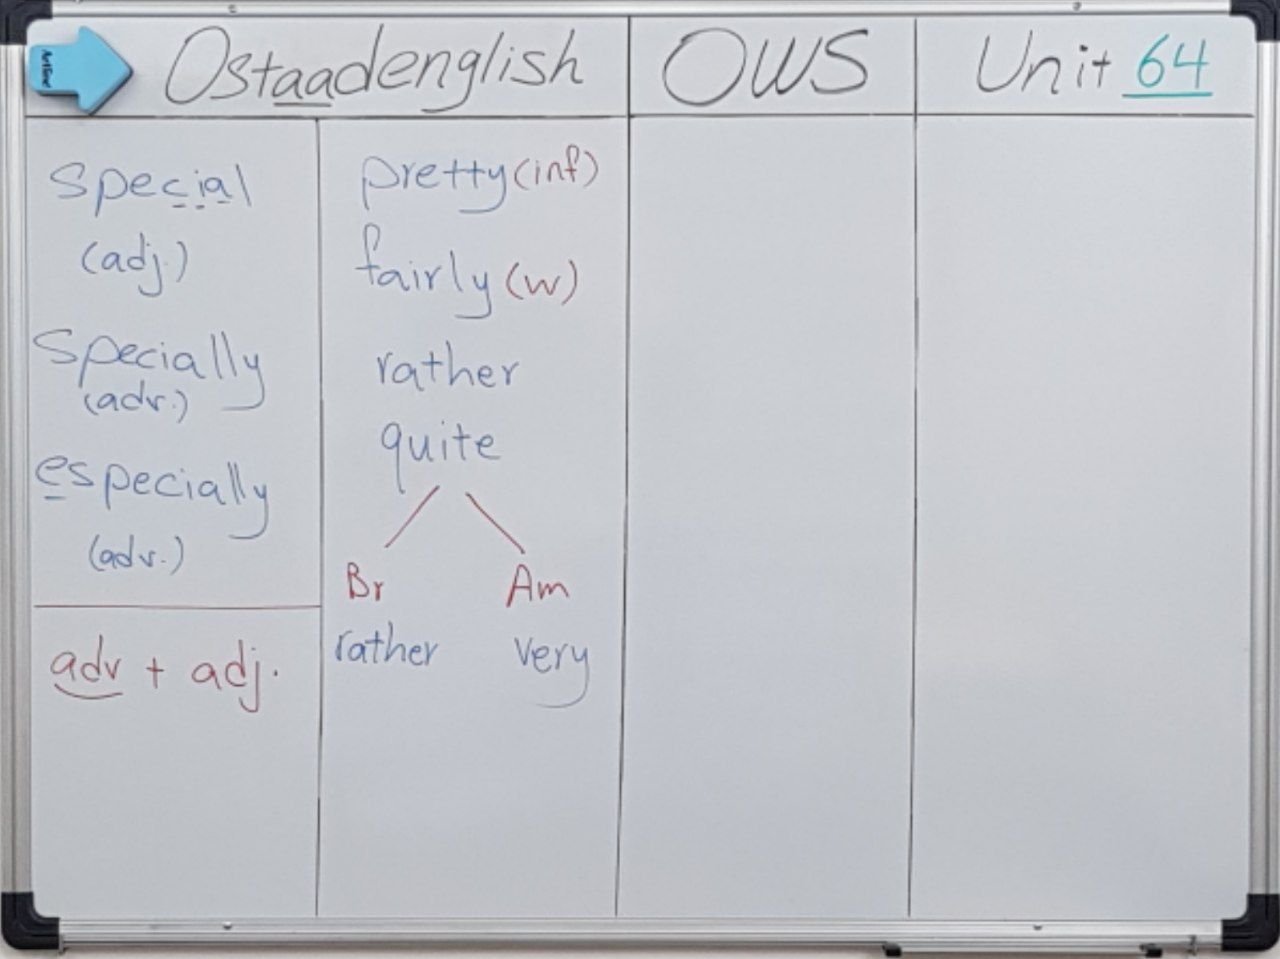 Artline
Ostaadenglish
OWS
Unit 64
special
(adj.)
specially
(adv.)
especially
(adv.)
adv + adj.
pretty (inf)
fairly (w)
rather
quite
Br Am
rather very